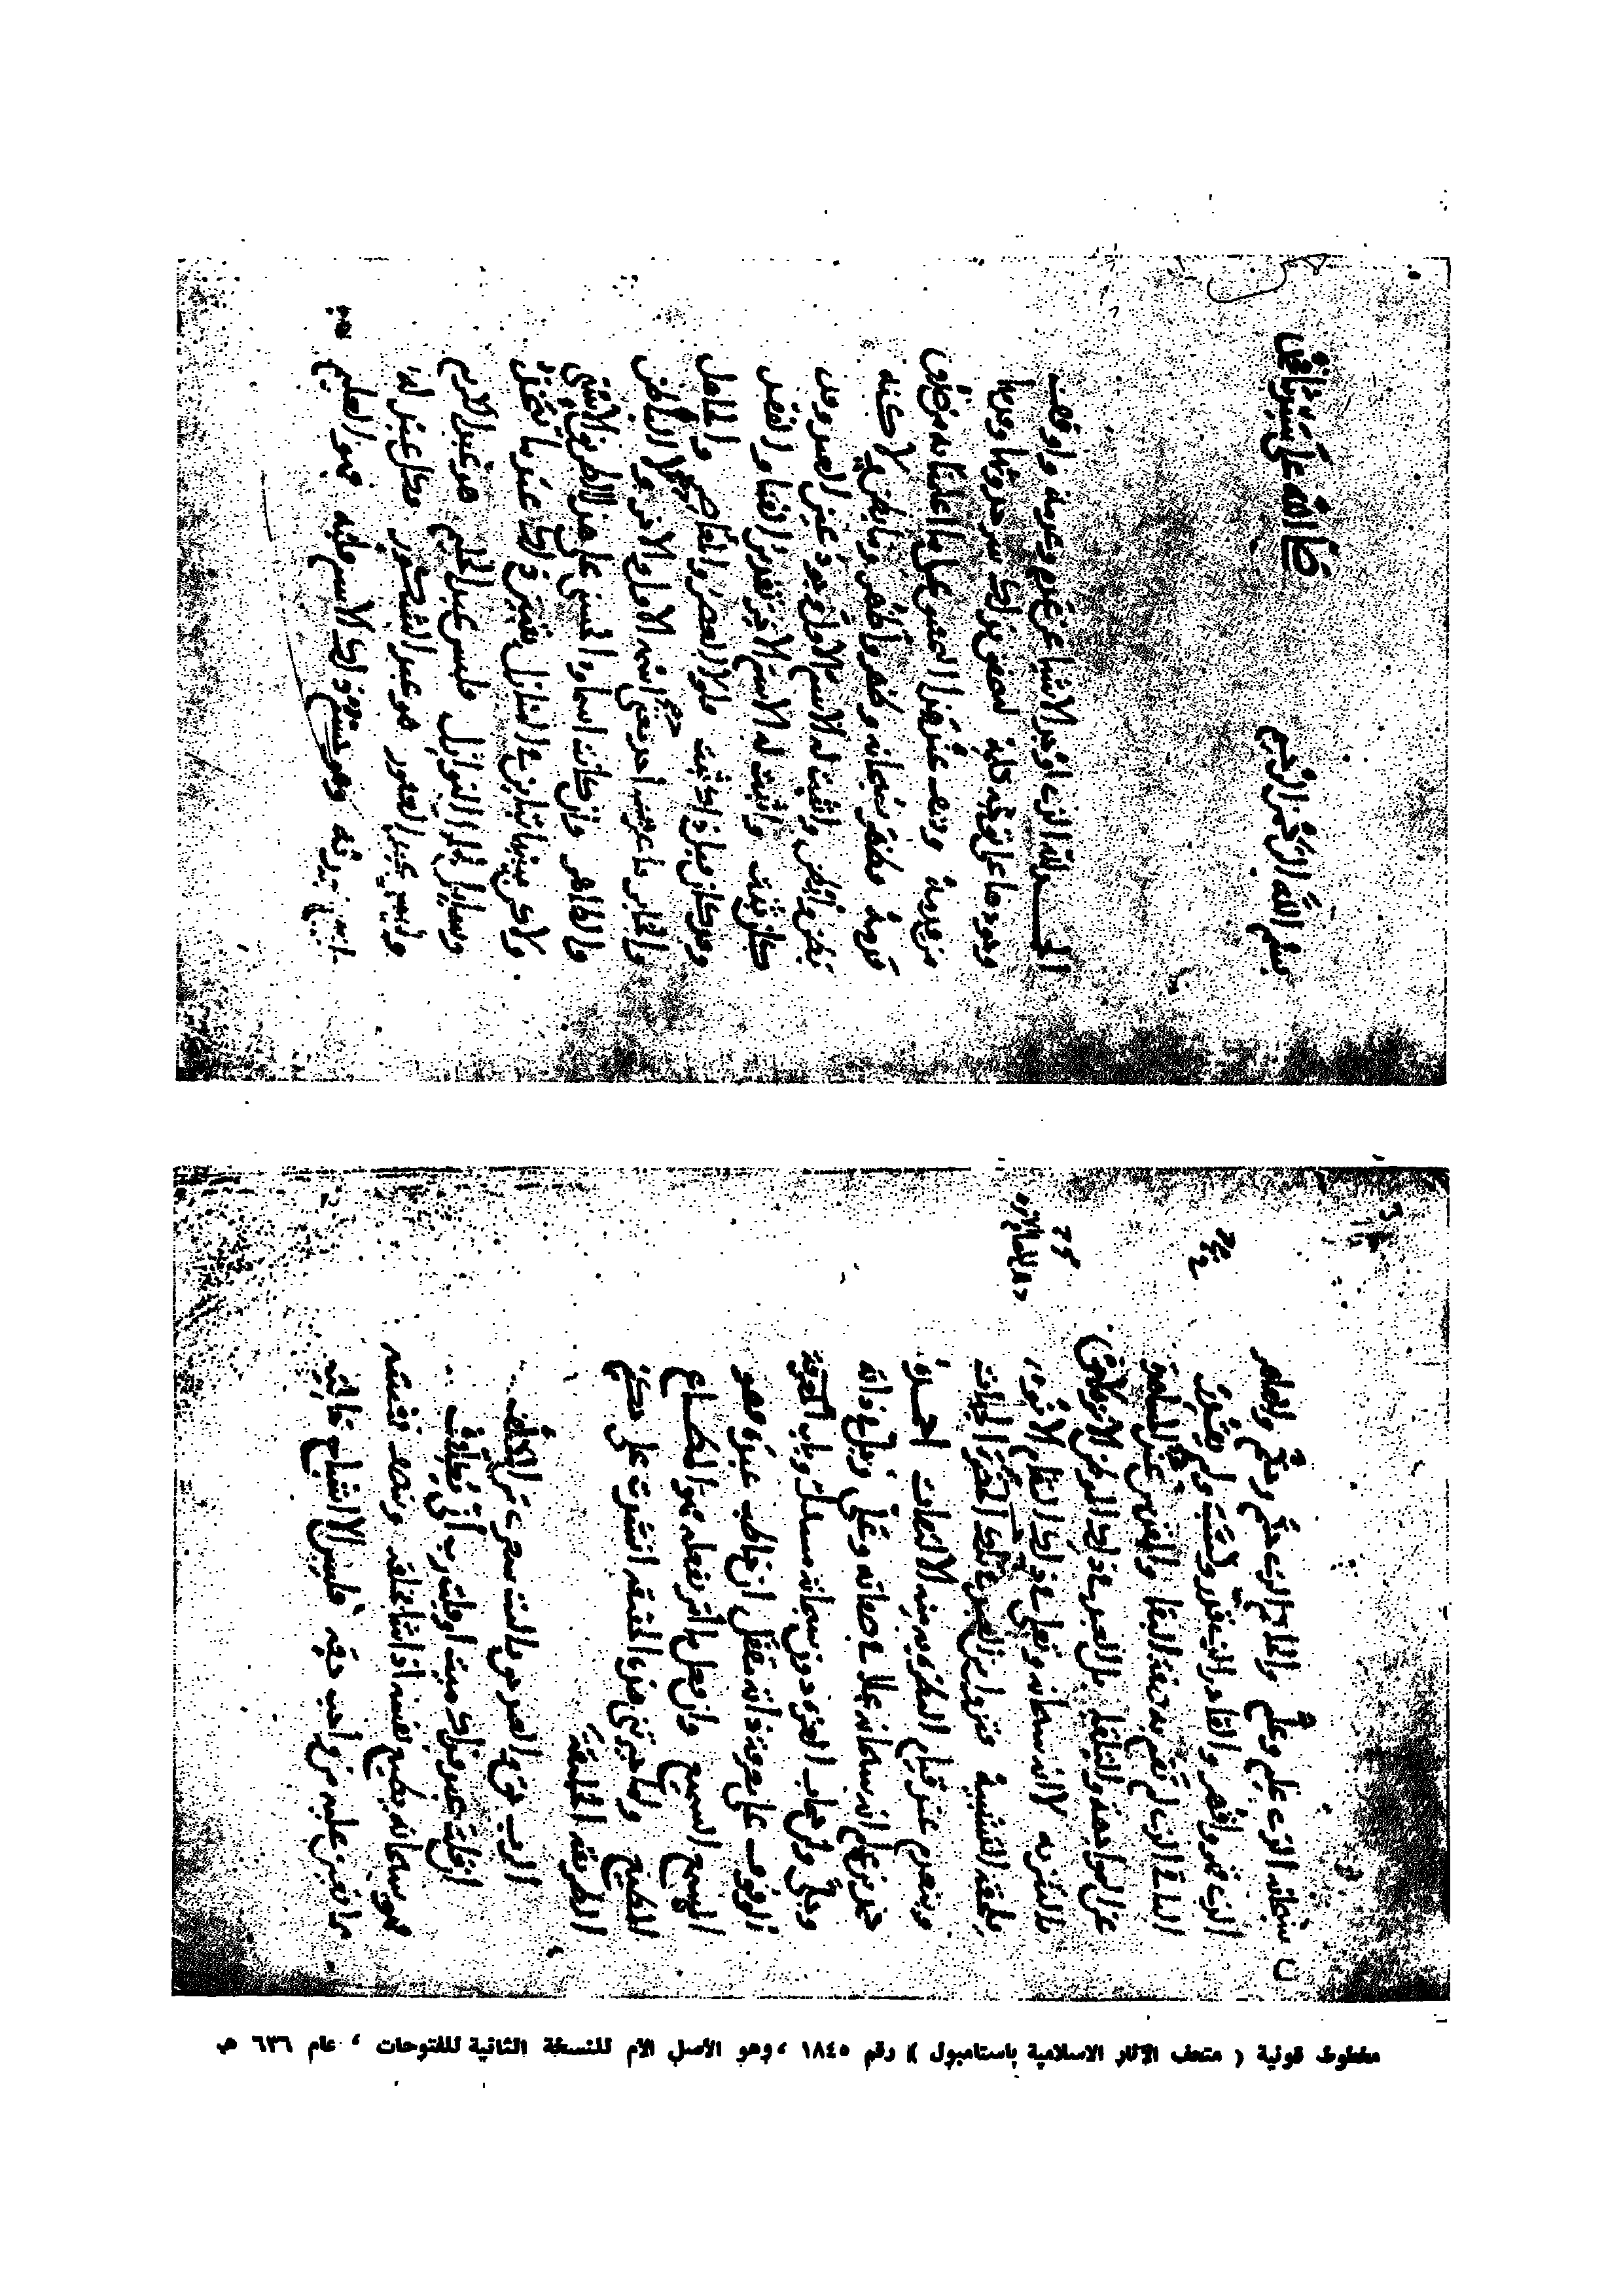 بسم الله الرحمن الرحيم صلى الله على سيدنا محمد
الحمد لله الذي اوجد الاشيا عن عدم وعدمه واوقف
وجودها على توجه كلمه لنحقق بذلك سر حدوثها وقدمها
من قدمه ونقف عند هذا التحقيق على ما اعلمنا به من صدق
قدمه فظهر سبحانه وظهر واظهر وما بطن ولاكنه
بطن وابطن واثبت له الاسم الاول وجود عين العبد وقد
كان ثبت واثبت له الاسم الاخر تقدير الفنا والفقد
وقد كان قبل ذلك ثبت فلولا العصر والمعاصر والجاهل
والخابر ما عرف احد معنى اسمه الاول والاخر ولا الباطن
والظاهر وان كانت اسماوه الحسنى على هذا الطريق الاسنى
ولاكن بينها تباين في المنازل يتبين ذلك عندما تتخذ
وسايل لحلول النوازل فليس عبد الحليم هو عبد الكريم
وليس عبد الغفور هو عبد الشكور فكل عبد له
اسم هو ربه وهو جسم ذلك الاسم قلبه فهو العليم
سبحانه الذي علم وعلّم والحاكم الذي حكم وحكّم والقاهر
الذي قهر واقهر والقادر الذي قدر وكسب ولم يقدر
الباقي الذي لم تقم به صفة البقا والمقدس عند المشاهدة
عن المواجهة والتلقا بل العبد في ذلك الموطن الانزه لاحق
بالتنزيه لا انه سبحانه وتعالى في ذلك المقام الانوه
يلحقه التشبيه فتزول من العبد في تلك الحضرة الجهات
وينعدم عند قيام النظرة به منه الالتفات احمده
حمد من علم انه سبحانه علا في صفاته وعلّى وجل في ذاته
وجلّى وان حجاب العزة دون سبحاته مسدل وباب
الوقوف على معرفة ذاته مقفل ان خاطب عبده فهو
المسمع السميع وان فعل ما امر بفعله فهو المطاع
المطيع ولما حيرتني هذه الحقيقة انشدت على حكم
الطريقة للخليقة
الرب حق والعبد حق يا ليت شعري من المكلف
ان قلت عبد فذاك ميت او قلت رب انى يكلف
فهو سبحانه يطيع نفسه اذا شا بخلقه وينصف نفسه
مما تعين عليه من واجب حقه فليس الا اشباح خالية
مخطوط قونية ( متحف الآثار الاسلامية باستامبول ) رقم ١٨٤٥ ، وهو الأصل الأم للنسخة الثانية للفتوحات ، عام ٦٣٦ هـ